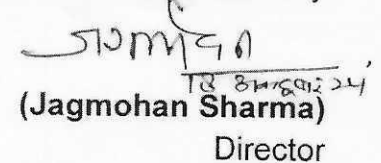 जगमोहन
(Jagmohan Sharma)
Director